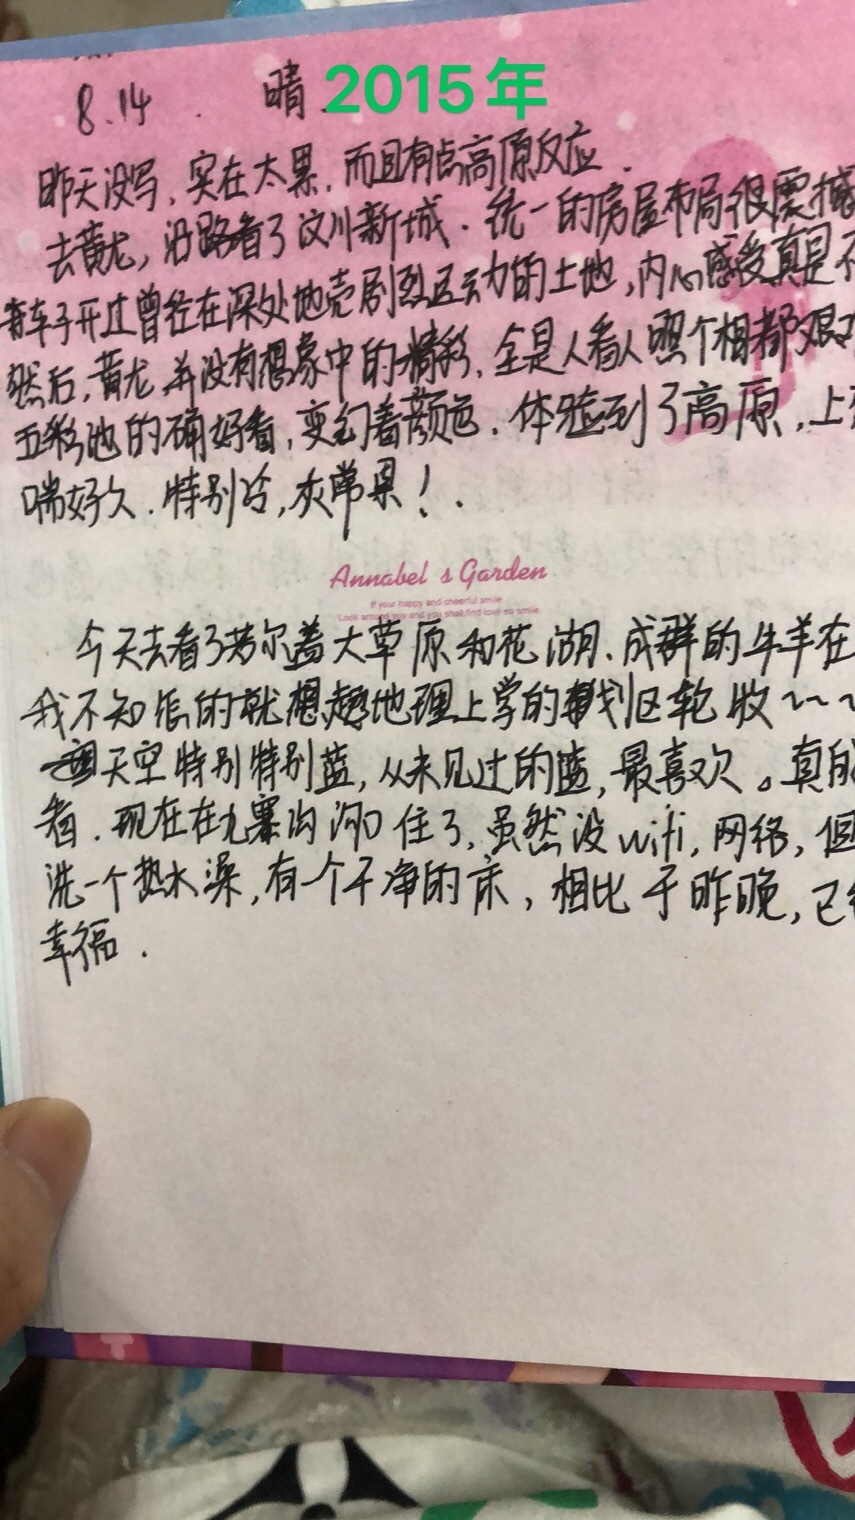 8.14 晴 2015年
昨天没写，实在太累，而且有点高原反应．
去黄龙，沿路看了汶川新城．统一的房屋布局很震撼
车子开过曾经在深处地壳剧烈运动的土地，内心感受真是不
然后，黄龙并没有想象中的精彩．全是人看人照个相都艰
五彩池的确好看，变幻着颜色．体验到了高原，上
喘好久．特别冷，灰常累！．
Annabel s Garden
If your happy and cheerful smile
Look around you and you shall find love so smile
今天去看了若尔盖大草原和花湖．成群的牛羊在
我不知怎的就想起地理上学的划区轮收~~~
天空特别特别蓝，从未见过的蓝，最喜欢。真的
着．现在在九寨沟沟口住了，虽然没wifi，网络，但
洗一个热水澡，有一个干净的床，相比于昨晚，已
幸福．